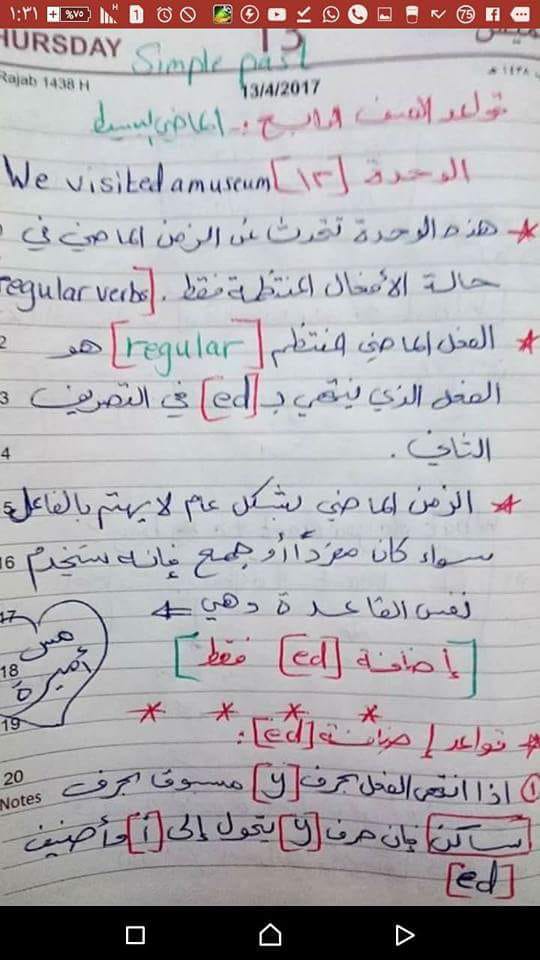 ١:٣١
%٧٥
75
HURSDAY
13
Rajab 1438 H
Simple past
13/4/2017
قواعد الصف الرابع : الماضي البسيط
We visited a museum [١٣] الوحدة
* هذه الوحدة تتحدث عن الزمن الماضي في
حالة الأفعال المنتظمة فقط . [regular verbs
* الفعل الماضي المنتظم [regular] هو
2
3
الفعل الذي ينتهي بـ [ed] في التصريف
4
الثاني .
5
* الزمن الماضي بشكل عام لا يهتم بالفاعل
16
سواء كان مفرداً أو جمع فإنه ستخدم
17
نفس القاعدة وهي
[إضافة [ed] فقط]
هس
أميرة
18
19
* * * *
* قواعد إضافة [ed]:
20
Notes
① اذا انتهى الفعل بحرف [y] مسبوق بحرف
ساكن فإن حرف [y] يتحول إلى [i] وأضيف
[ed]